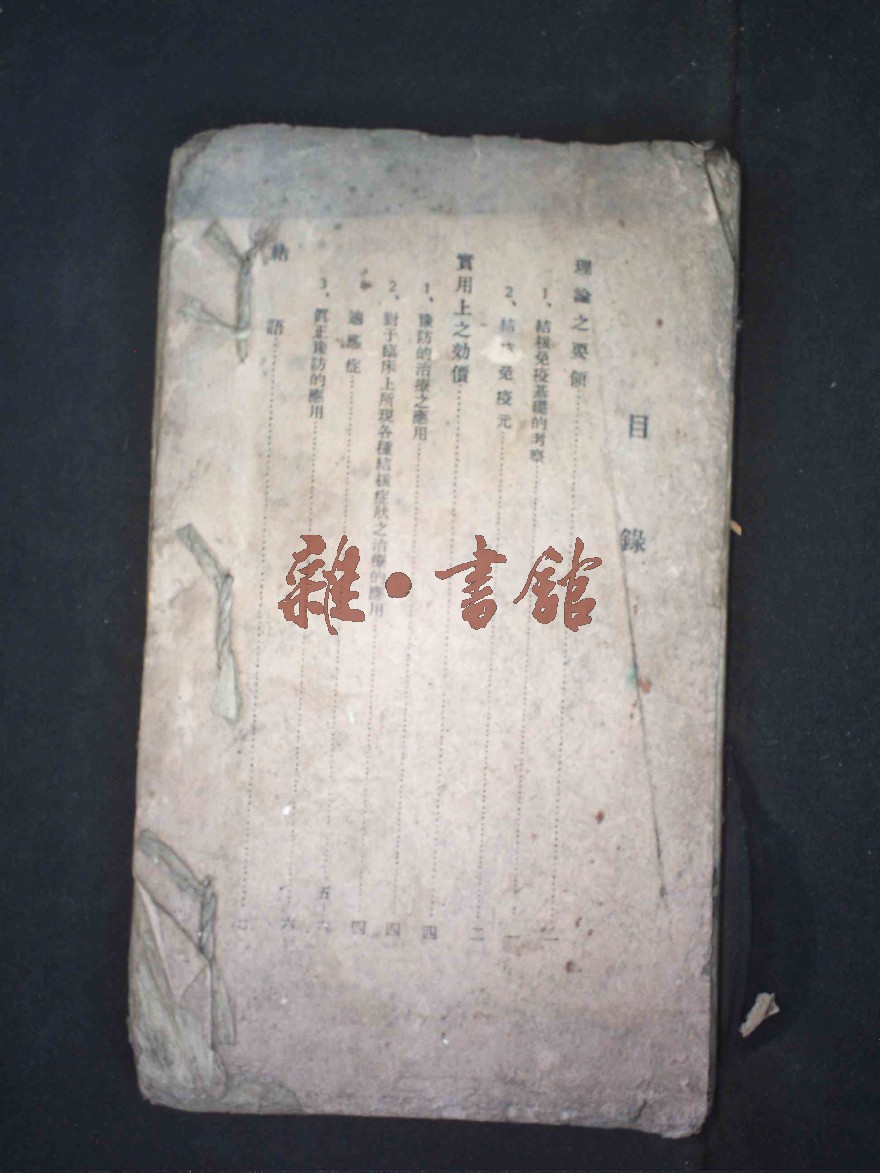 目錄
理論之要領……一
1、結核免疫基礎的考察……一
2、結核免疫元……二
實用上之効價……四
1、豫防的治療之應用……四
2、對于臨床上所現各種結核症狀之治療的應用……四
適應症……五-六
3、眞正豫防的應用……六
結語
雜·書館